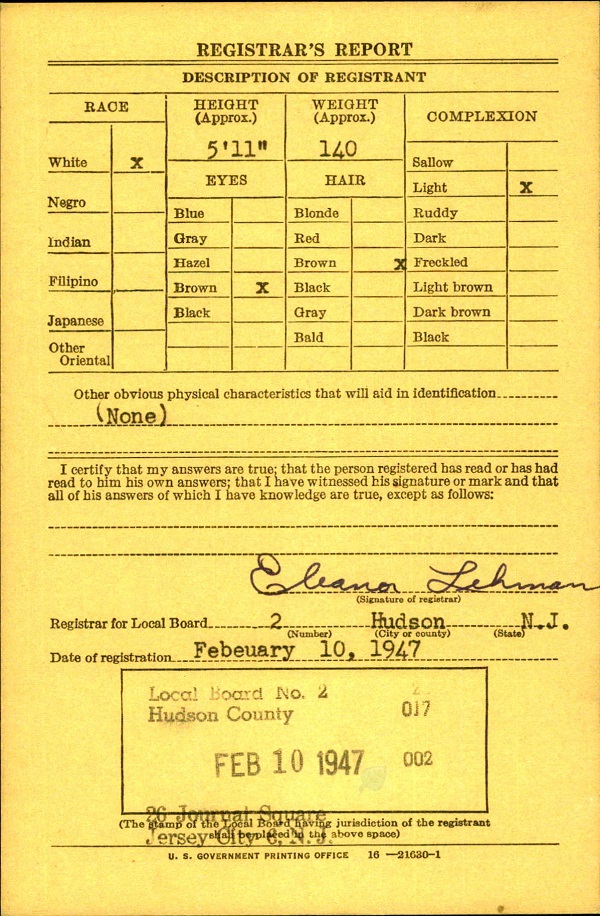 REGISTRAR'S REPORT
DESCRIPTION OF REGISTRANT
RACE
HEIGHT (Approx.)
WEIGHT (Approx.)
COMPLEXION
5'11"
140
White X
Sallow
EYES
HAIR
Light X
Negro
Blue
Blonde
Ruddy
Indian
Gray
Red
Dark
Hazel
Brown X
Freckled
Filipino
Brown X
Black
Light brown
Japanese
Black
Gray
Dark brown
Other Oriental
Bald
Black
Other obvious physical characteristics that will aid in identification
(None)
I certify that my answers are true; that the person registered has read or has had
read to him his own answers; that I have witnessed his signature or mark and that
all of his answers of which I have knowledge are true, except as follows:
Eleanor Lehman
(Signature of registrar)
Registrar for Local Board 2 Hudson N.J.
(Number) (City or county) (State)
Date of registration Febeuary 10, 1947
Local Board No. 2 2
Hudson County 017
FEB 10 1947 002
26 Journal Square
(The stamp of the Local Board having jurisdiction of the registrant
shall be placed in the above space)
Jersey City 6, N. J.
U. S. GOVERNMENT PRINTING OFFICE 16—21630-1